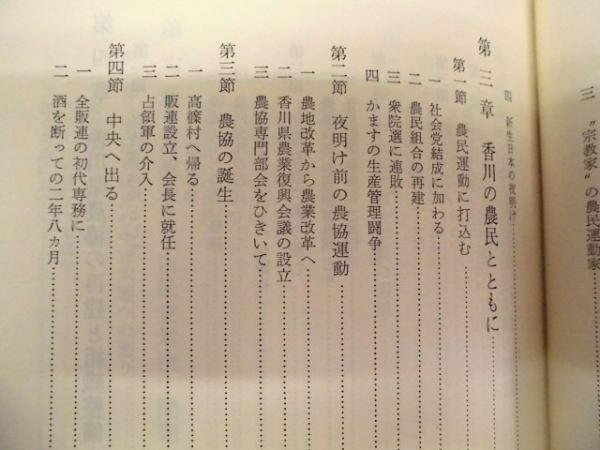 三 〝宗教家〟の農民運動家
四 新生日本の夜明け
第三章 香川の農民とともに
第一節 農民運動に打込む
一 社会党結成に加わる
二 農民組合の再建
三 衆院選に連敗
四 かますの生産管理闘争
第二節 夜明け前の農協運動
一 農地改革から農業改革へ
二 香川県農業復興会議の設立
三 農協専門部会をひきいて
第三節 農協の誕生
一 高篠村へ帰る
二 販連設立、会長に就任
三 占領軍の介入
第四節 中央へ出る
一 全販連の初代専務に
二 酒を断っての二年八カ月